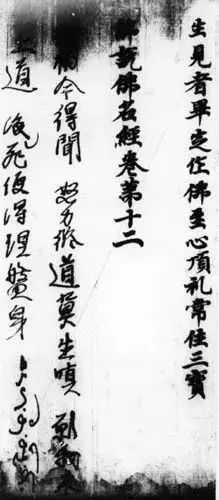 生見者畢定住佛至心頂礼常住三寶
佛說佛名經卷第十二
今得聞 努力修道莫生嗔
道 後死後得理盤身